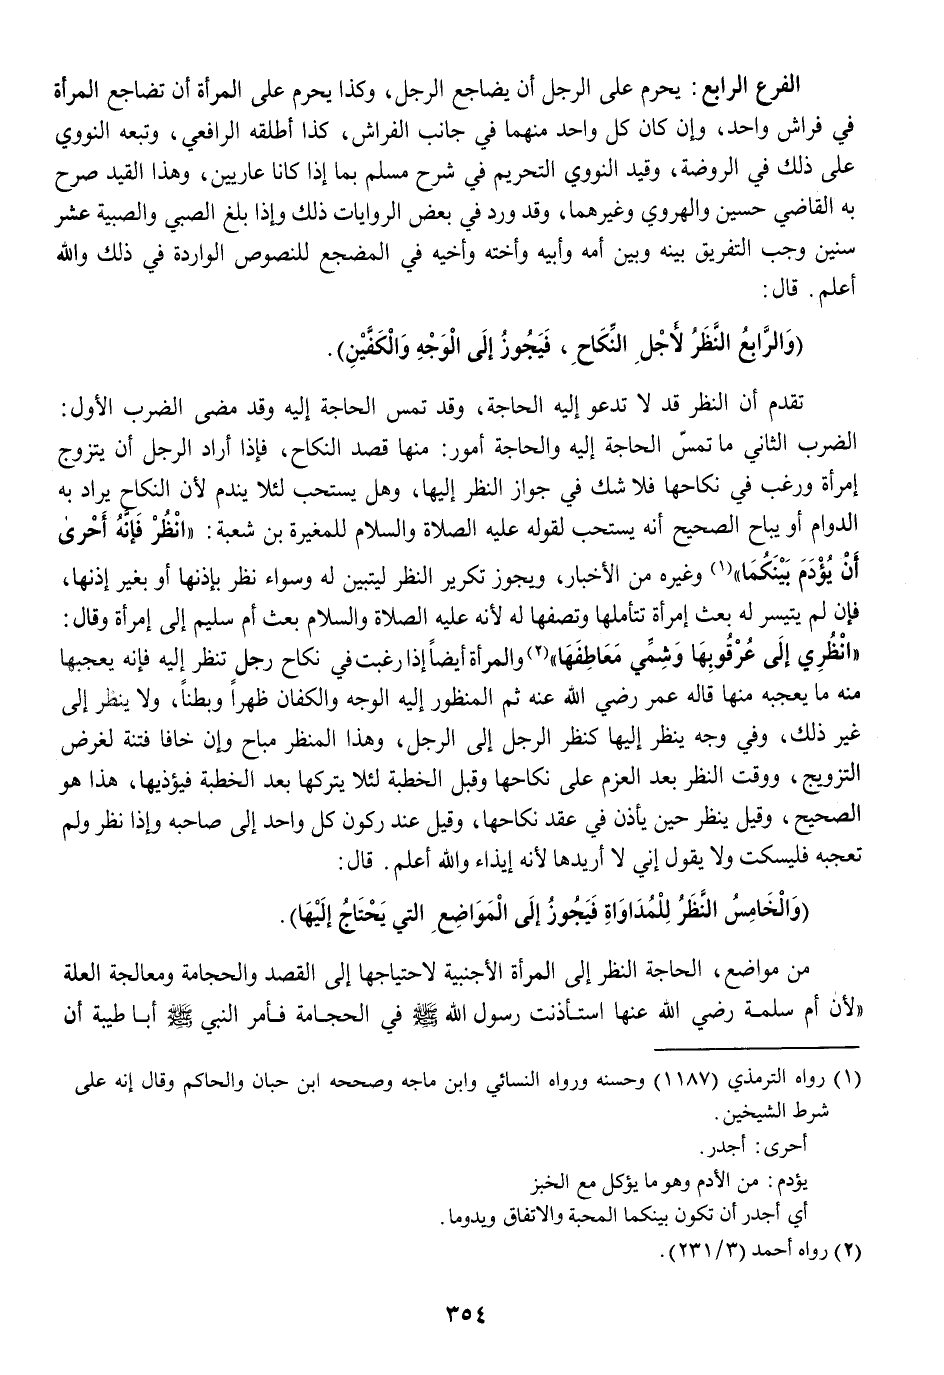 الفرع الرابع: يحرم على الرجل أن يضاجع الرجل، وكذا يحرم على المرأة أن تضاجع المرأة
في فراش واحد، وإن كان كل واحد منهما في جانب الفراش، كذا أطلقه الرافعي، وتبعه النووي
على ذلك في الروضة، وقيد النووي التحريم في شرح مسلم بما إذا كانا عاريين، وهذا القيد صرح
به القاضي حسين والهروي وغيرهما، وقد ورد في بعض الروايات ذلك وإذا بلغ الصبي والصبية عشر
سنين وجب التفريق بينه وبين أمه وأبيه وأخته وأخيه في المضجع للنصوص الواردة في ذلك والله
أعلم. قال:
(وَالرَّابعُ النَّظَرُ لأَجْلِ النِّكَاحِ، فَيَجُوزُ إلَى الْوَجْهِ وَالْكَفَّيْنِ).
تقدم أن النظر قد لا تدعو إليه الحاجة، وقد تمس الحاجة إليه وقد مضى الضرب الأول:
الضرب الثاني ما تمسّ الحاجة إليه والحاجة أمور: منها قصد النكاح، فإذا أراد الرجل أن يتزوج
إمرأة ورغب في نكاحها فلا شك في جواز النظر إليها، وهل يستحب لئلا يندم لأن النكاح يراد به
الدوام أو يباح الصحيح أنه يستحب لقوله عليه الصلاة والسلام للمغيرة بن شعبة: «انْظُرْ فَإِنَّهُ أَحْرىٰ
أَنْ يُؤْدَمَ بَيْنَكُمَا»(١) وغيره من الأخبار، ويجوز تكرير النظر ليتبين له وسواء نظر بإذنها أو بغير إذنها،
فإن لم يتيسر له بعث إمرأة تتأملها وتصفها له لأنه عليه الصلاة والسلام بعث أم سليم إلى إمرأة وقال:
«انْظُرِي إلَى عُرْقُوبِهَا وَشِمِّي مَعَاطِفَهَا»(٢) والمرأة أيضاً إذا رغبت في نكاح رجل تنظر إليه فإنه يعجبها
منه ما يعجبه منها قاله عمر رضي الله عنه ثم المنظور إليه الوجه والكفان ظهراً وبطناً، ولا ينظر إلى
غير ذلك، وفي وجه ينظر إليها كنظر الرجل إلى الرجل، وهذا المنظر مباح وإن خافا فتنة لغرض
التزويج، ووقت النظر بعد العزم على نكاحها وقبل الخطبة لئلا يتركها بعد الخطبة فيؤذيها، هذا هو
الصحيح، وقيل ينظر حين يأذن في عقد نكاحها، وقيل عند ركون كل واحد إلى صاحبه وإذا نظر ولم
تعجبه فليسكت ولا يقول إني لا أريدها لأنه إيذاء والله أعلم. قال:
(وَالْخَامِسُ النَّظَرُ لِلْمُدَاوَاةِ فَيَجُوزُ إلَى الْمَوَاضِعِ التي يَحْتَاجُ إلَيْهَا).
من مواضع، الحاجة النظر إلى المرأة الأجنبية لاحتياجها إلى القصد والحجامة ومعالجة العلة
«لأن أم سلمـة رضي الله عنها استـأذنت رسول الله ﷺ في الحجـامة فـأمر النبي ﷺ أبـا طيبة أن
(١) رواه الترمذي (١١٨٧) وحسنه ورواه النسائي وابن ماجه وصححه ابن حبان والحاكم وقال إنه على
شرط الشيخين.
أحرى: أجدر.
يؤدم: من الأدم وهو ما يؤكل مع الخبز
أي أجدر أن تكون بينكما المحبة والاتفاق ويدوما.
(٢) رواه أحمد (٢٣١/٣).
٣٥٤